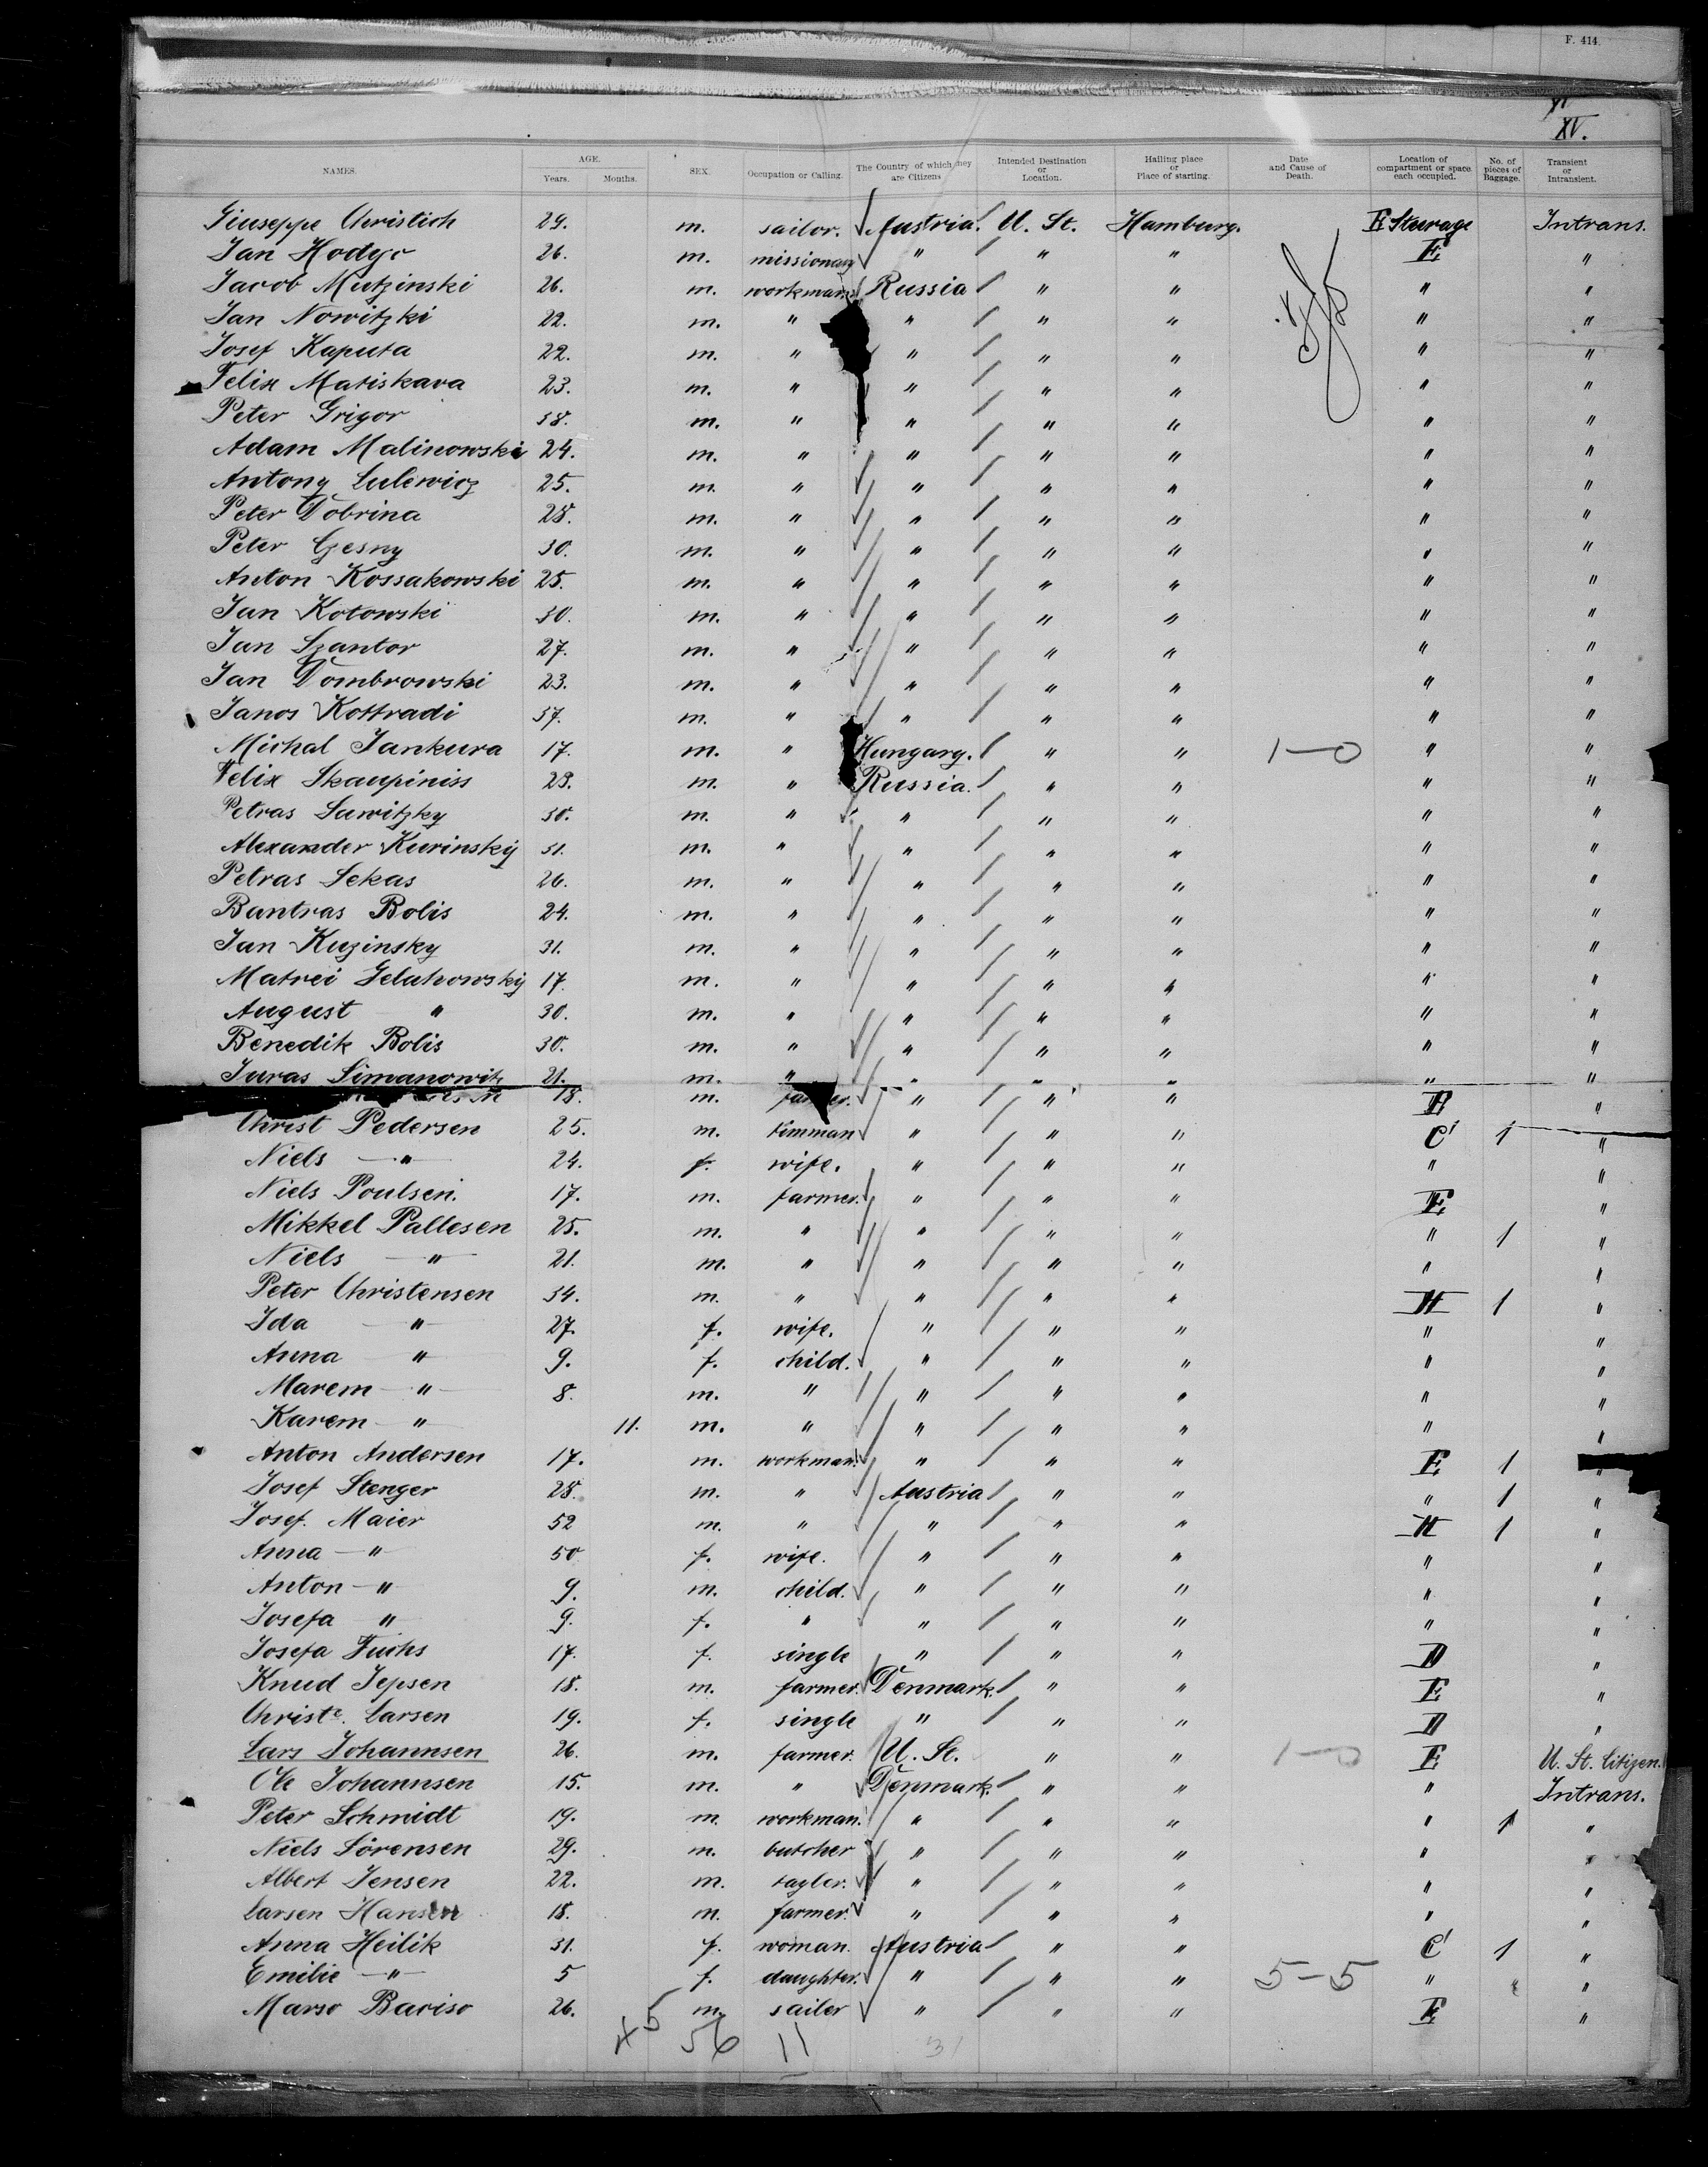 F. 414.
XV.
NAMES. AGE. Years. Months. SEX. Occupation or Calling. The Country of which they are Citizens Intended Destination or Location. Hailing place or Place of starting. Date and Cause of Death. Location of compartment or space each occupied. No. of pieces of Baggage. Transient or Intransient.
Giuseppe Christich 29. m. sailor. Austria. U. St. Hamburg. E Steerage Intrans.
Jan Hodyo 26. m. missionary " " " E "
Jacob Mutzinski 26. m. workman. Russia " " " "
Jan Nowitzki 22. m. " " " " " "
Josef Kaputa 22. m. " " " " " "
Felix Matiskava 23. m. " " " " " "
Peter Grigor 38. m. " " " " " "
Adam Malinowski 24. m. " " " " " "
Antony Lulewicz 25. m. " " " " " "
Peter Dobrina 28. m. " " " " " "
Peter Czesny 30. m. " " " " " "
Anton Kossakowski 25. m. " " " " " "
Jan Kotowski 30. m. " " " " " "
Jan Szantor 27. m. " " " " " "
Jan Dombrowski 23. m. " " " " " "
Janos Kottradi 37. m. " " " " " "
Michal Jankura 17. m. " Hungary. " " 1-0 " "
Felix Skaupiniss 29. m. " Russia. " " " "
Petras Sawitzky 30. m. " " " " " "
Alexander Kurinsky 31. m. " " " " " "
Petras Sekas 26. m. " " " " " "
Bantras Bolis 24. m. " " " " " "
Jan Kuzinsky 31. m. " " " " " "
Matwei Gelukowsky 17. m. " " " " " "
August " 30. m. " " " " " "
Benedik Bolis 30. m. " " " " " "
Juras Simanowitz 21. m. " " " " " "
18. m. farmer. " " " E "
Christ Pedersen 25. m. timman " " " C' 1 "
Niels " 24. f. wife. " " " " "
Niels Poulsen. 17. m. farmer. " " " E "
Mikkel Pallesen 25. m. " " " " " 1 "
Niels " 21. m. " " " " " "
Peter Christensen 34. m. " " " " H 1 "
Ida " 27. f. wife. " " " " "
Anna " 9. f. child. " " " " "
Marem " 8. m. " " " " " "
Karem " 11. m. " " " " " "
Anton Andersen 17. m. workman. " " " E 1 "
Josef Stenger 28. m. " Austria " " " 1 "
Josef. Maier 52 m. " " " " H 1 "
Anna " 50 f. wife. " " " " "
Anton " 9. m. child. " " " " "
Josefa " 9. f. " " " " " "
Josefa Fuchs 17. f. single " " " D "
Knud Jepsen 18. m. farmer. Denmark. " " E "
Christe. Larsen 19. f. single " " " D "
Lars Johannsen 26. m. farmer. U. St. " " 1-0 E U. St. Citizen.
Ole Johannsen 15. m. " Denmark. " " " Intrans.
Peter Schmidt 19. m. workman. " " " " 1 "
Niels Sörensen 29. m. butcher " " " " "
Albert Jensen 22. m. tayler. " " " " "
Larsen Hansen 18. m. farmer. " " " " "
Anna Heilik 31. f. woman. Austria " " C' 1 "
Emilie " 5 f. daughter. " " " 5-5 " "
Marso Bariso 26. m. sailer " " " E "
45 56 11 31